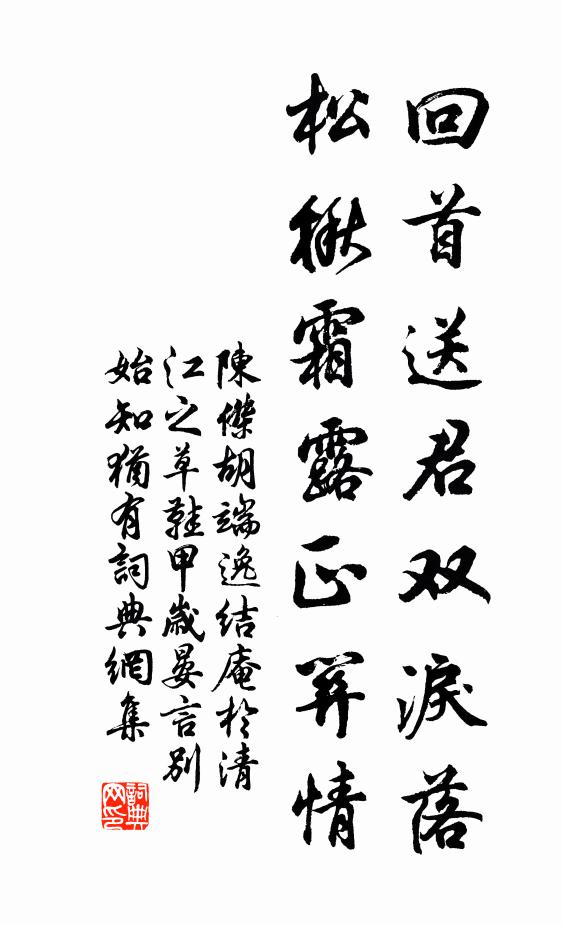 回首送君双淚落
松楸霜露正關情
陳傑胡端逸結庵於清
江之草鞋甲歲晏言別
始知猶有詞典網集
詞典网印